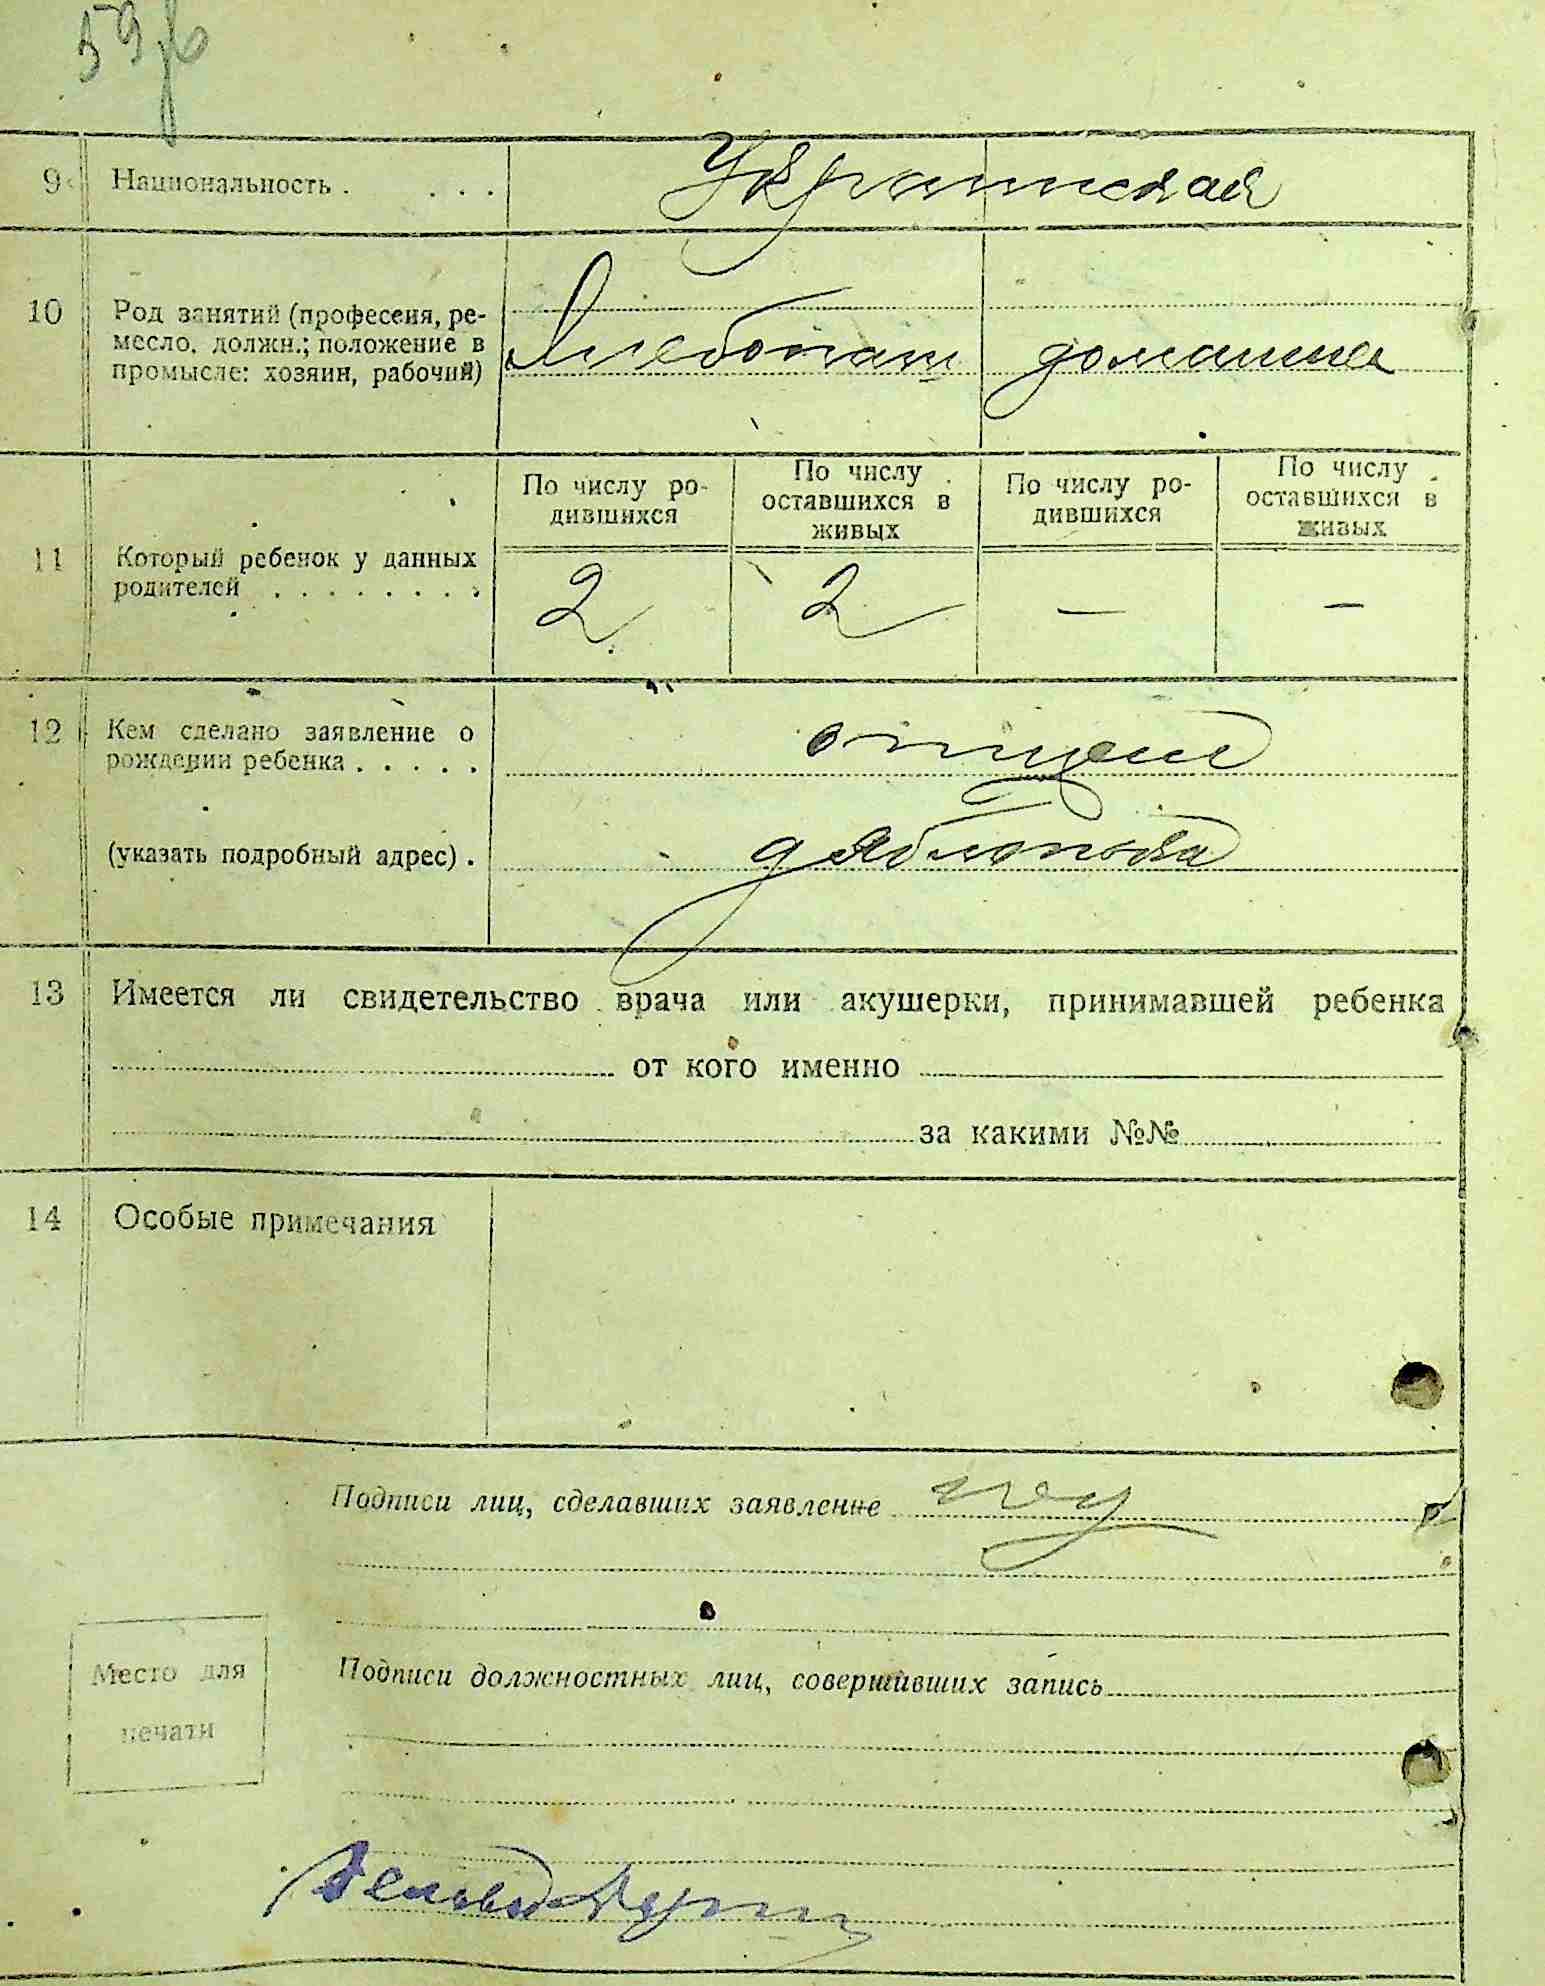 59 об
9 Национальность . . . . Украинская
10 Род занятий (професеия, ре-
месло, должн.; положение в
промысле: хозяин, рабочий)
Хлебопаш домашнее
По числу ро-
дившихся
По числу
оставшихся в
живых
По числу ро-
дившихся
По числу
оставшихся в
живых
11 Который ребенок у данных
родителей . . . . . . . .
2 2 — —
12 Кем сделано заявление о
рождении ребенка . . . . .
отцем
(указать подробный адрес) .
13 Имеется ли свидетельство врача или акушерки, принимавшей ребенка
от кого именно
за какими №№
14 Особые примечания
Подписи лиц, сделавших заявление
Место для
печати
Подписи должностных лиц, совершивших запись